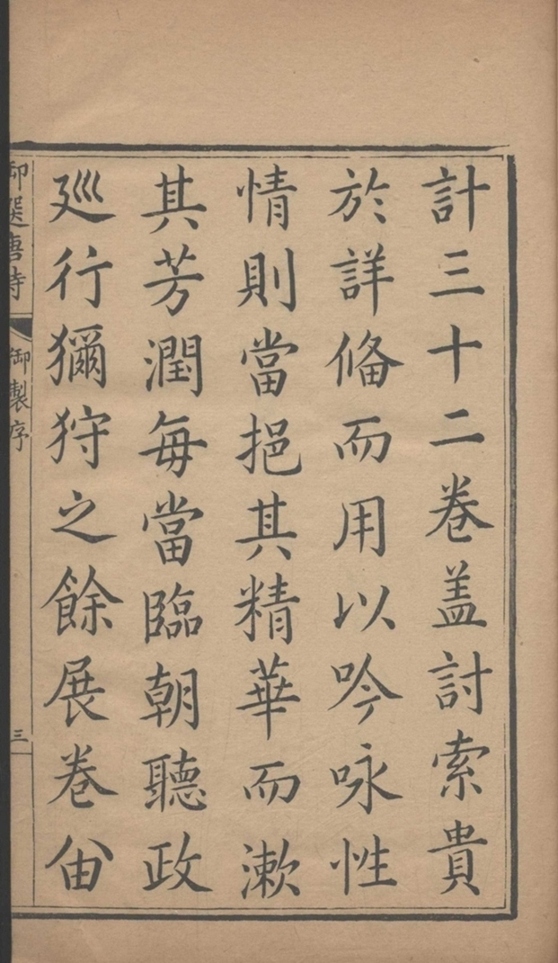 計三十二卷盖討索貴
於詳俻而用以吟咏性
情則當挹其精華而漱
其芳潤每當臨朝聽政
廵行獮狩之餘展卷由
御選唐詩
御製序
三